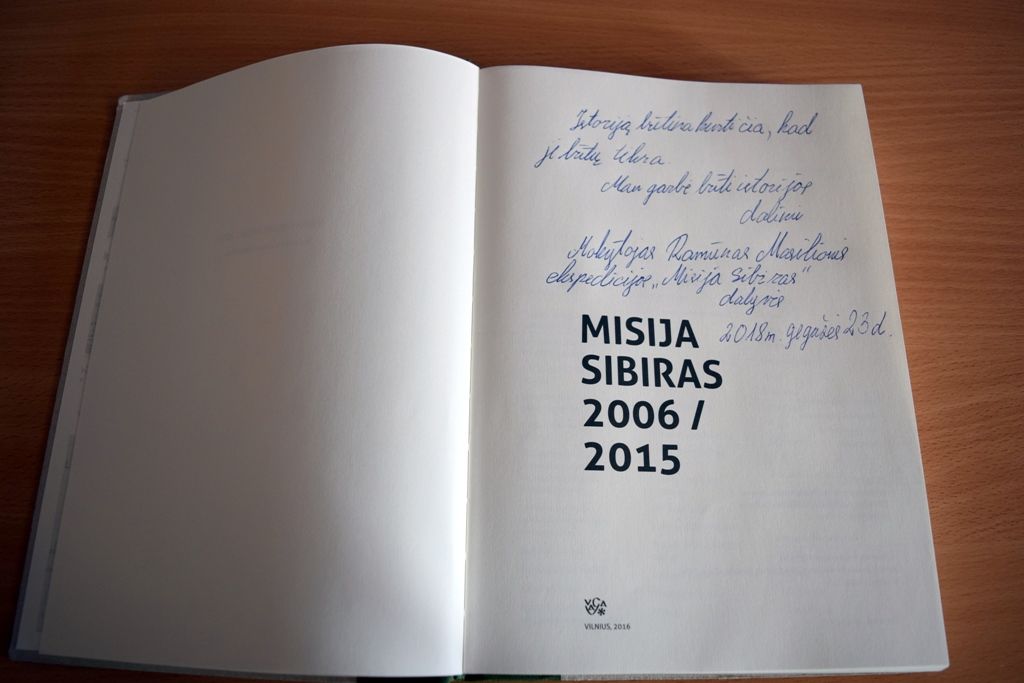 Istoriją būtina kurti čia, kad
ji būtų tikra.
Man garbė būti istorijos
dalimi
Mokytojas Ramūnas Masilionis
ekspedicijos „Misija Sibiras"
dalyvis
2018 m. gegužės 23 d.
MISIJA
SIBIRAS
2006 /
2015
VILNIUS, 2016